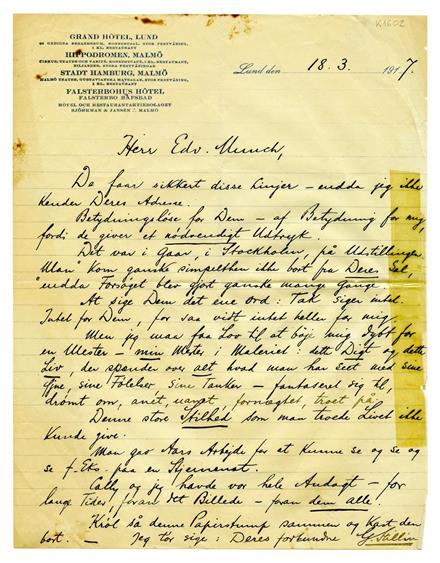 K1602
GRAND HÔTEL, LUND
1 KL. RESTAURANT
HIPPODROMEN, MALMÖ
STADT HAMBURG, MALMÖ
FALSTERBOHUS HÔTEL
FALSTERBO HAFSBAD
HÔTEL OCH RESTAURANTAKTIEBOLAGET
SJÖRKMAN & JANSEN MALMÖ
Lund den 18.3. 1917.
Herr Edv. Munch,
De faar sikkert disse Linjer – endda jeg ikke
kender Deres Adresse.
Betydningsløse for Dem – af Betydning for mig,
fordi de giver et nødvendigt Udtryk.
Det var i Gaar, i Stockholm, på Udstillingen.
Man kom ganske simpelthen ikke bort fra Deres Sal,
endda Forsøget blev gjort ganske mange Gange.
At sige Dem det ene Ord: Tak siger intet.
Intet for Dem, for saa vidt intet heller for mig.
Men jeg maa faa Lov til at bøje mig dybt for
en Mester – min Mester i Maleriet: dette Digt og dette
Liv, der spænder over alt hvad man har seet med sine
Øjne, sine Følelser, sine Tanker – fantaseret sig til,
drømt om, anet, uanet, fornægtet, troet på.
Denne store Stilhed som man troede Livet ikke
kunde give.
Man gav Aars Arbejde for et kunne se og se og
se f. Eks. paa en Stjernenat.
Cally og jeg havde vor hele Andagt – for
lange Tider, foran det Billede – foran dem alle.
Krøl så denne Papirstump sammen og kast den
bort. – Jeg tør sige: Deres forbundne G. Sallin